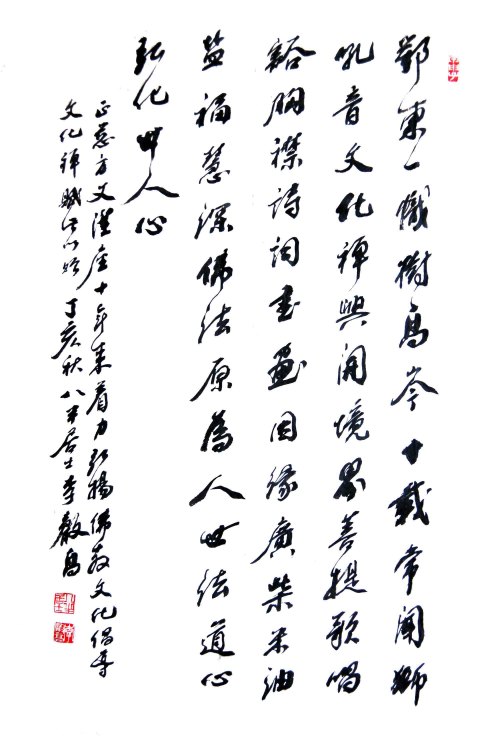 鄂東一幟樹高岑十載常聞獅
吼音文化禪興開境界菩提歌唱
豁胸襟詩詞書畫因緣廣柴米油
盐福慧深佛法原為人世法道心
弘化世人心
正慈方丈座十年來着力弘揚佛教文化倡導
文化禪賦此以 丁亥秋八居士李